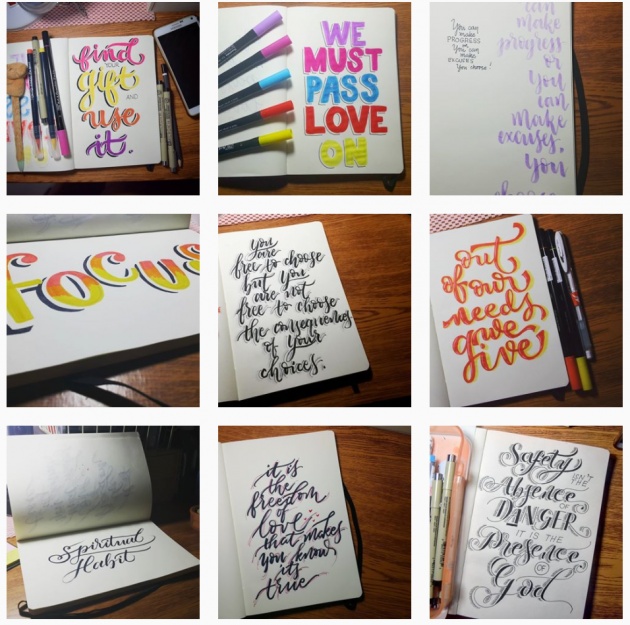 find
YOUR
gift
AND
use
it.
WE
MUST
PASS
LOVE
ON
You can
make
PROGRESS
or
You can
make
EXCUSES
You choose!
can
make
progress
or
you
can
make
excuses.
you
choose
focus
You
are
free to choose
but you
are not
free to choose
the consequences
of your
choices.
out
of our
needs
we
give
Spiritual
Habit
it is
the
freedom
of
love
that makes
you know
its
true
Safety
ISN'T
THE
Absence
OF
DANGER
IT IS THE
Presence
OF
God